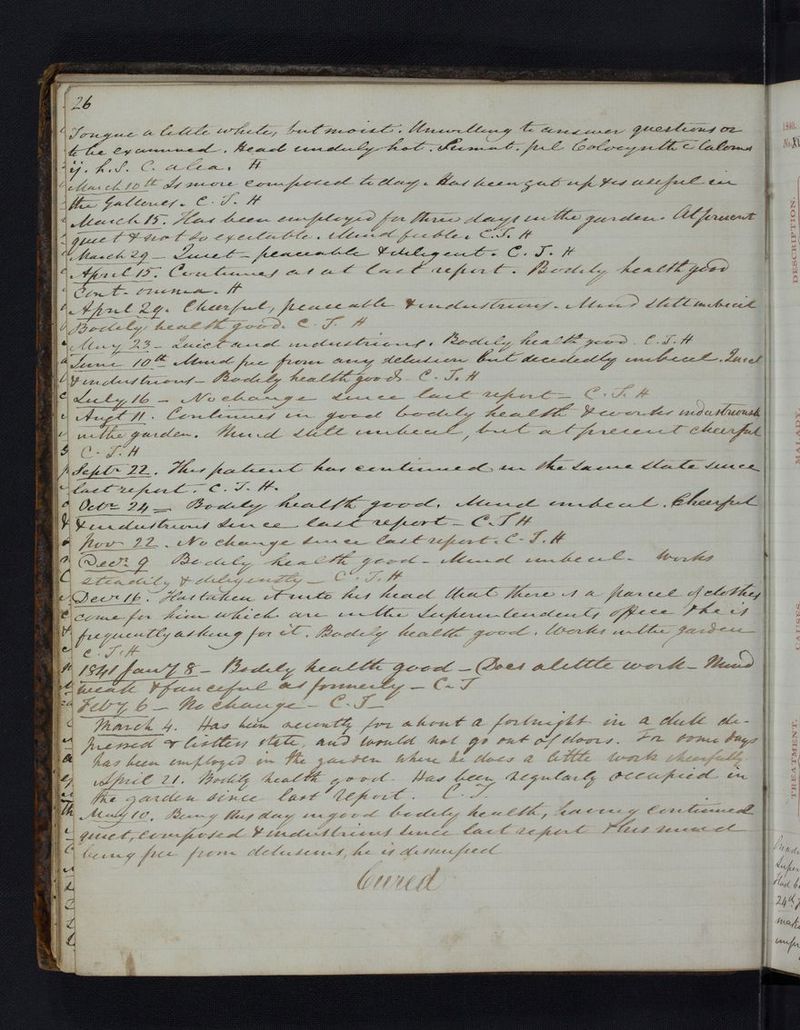 26
Tongue a little white, but moist. Unwilling to answer questions or
to be examined. Head unduly hot. Sumat. pil Colocynth c Calom
ij. h.s. C. alia. H
March 10th Is more composed to day. Has been got up & is useful in
the Galleries. C. T. H
March 15. Has been employed for three days in the garden. At present
quiet & not so excitable. Mind feeble. C.T. H
March 29 - Quiet - peaceable & diligent. C. T. H
April 15. Continues as at last report. Bodily health good
Cont. omnia. H
April 29. Cheerful, peaceable & industrious. Mind still imbecile
Bodily health good. C. T. H
May 23 - Quiet and industrious. Bodily health good. C.T.H
June 10th Mind free from any delusion but decidedly imbecile. Quiet
& industrious - Bodily health good. C. T. H
July 16 - No change since last report - C. T. H
Augt 11. Continues in good bodily health & works industriously
in the garden. Mind still imbecile, but at present cheerful
C. T. H
Septr 22. This patient has continued in the same state since
last report. C. T. H.
Octr 24 - Bodily health good. Mind imbecile. Cheerful
& industrious since last report - C. T H
Nov 22. No change since last report. C. T. H
Decr 9 Bodily health good - Mind imbecile - Works
steadily & diligently - C. T. H
Decr 16. Has taken it into his head that there is a parcel of clothes
come for him which are in the Superintendents office & he is
frequently asking for it. Bodily health good. Works in the garden
C. T. H
1841 Jany 8 - Bodily health good - Does a little work - Mind
weak & fanciful as formerly - C. T
Feby 6 - No change - C. T
March 4. Has been recently for about a fortnight in a dull de-
pressed & listless state, and would not go out of doors. For some days
has been employed in the garden where he does a little work cheerfully.
April 21. Bodily health good. Has been regularly occupied in
the garden since last report. C. T.
May 10. Being this day in good bodily health, having continued
quiet, composed & industrious since last report & his mind
being free from delusions, he is dismissed
Cured
DESCRIPTION.
MALADY.
CAUSES.
TREATMENT.
24th